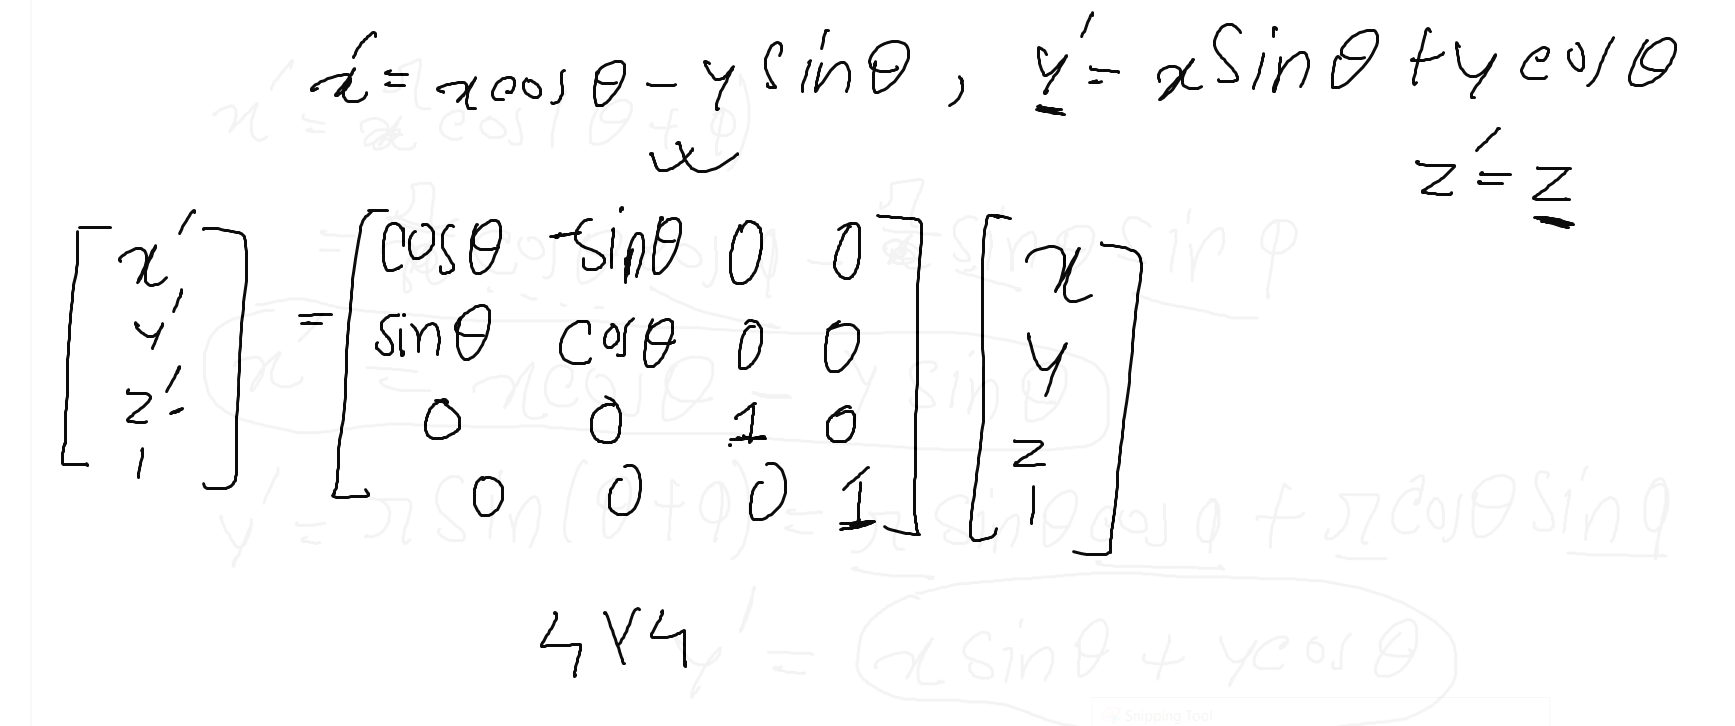 x' = x cosθ - y sinθ, y' = x sinθ + y cosθ
z' = z
[x' y' z' 1] = [cosθ -sinθ 0 0; sinθ cosθ 0 0; 0 0 1 0; 0 0 0 1] [x y z 1]
4x4
x' = r cos(θ+φ)
x' = x cosθ - y sinθ
y' = r sin(θ+φ) = r sinθ cosφ + r cosθ sinφ
y' = x sinθ + y cosθ
Snipping Tool